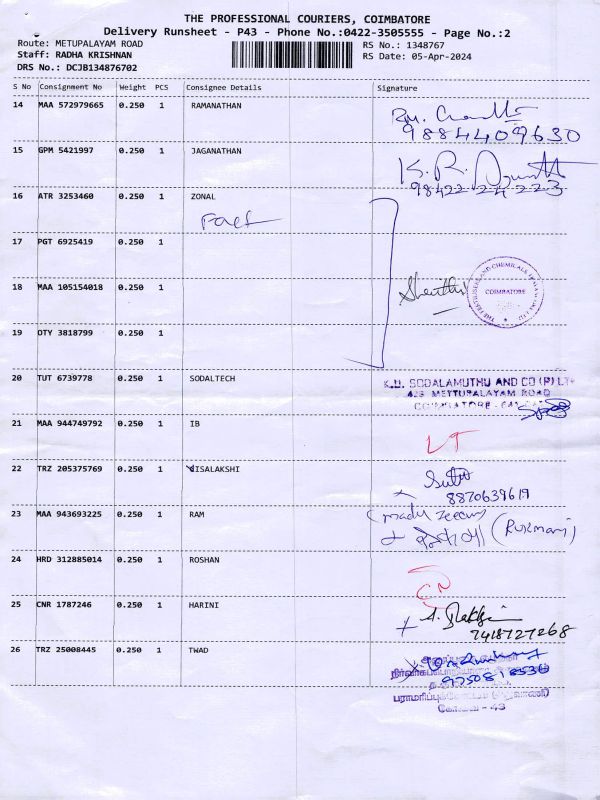 THE PROFESSIONAL COURIERS, COIMBATORE
Delivery Runsheet - P43 - Phone No.:0422-3505555 - Page No.:2
Route: METUPALAYAM ROAD
RS No.: 1348767
Staff: RADHA KRISHNAN
RS Date: 05-Apr-2024
DRS No.: DCJB134876702
S No Consignment No Weight PCS Consignee Details Signature
14 MAA 572979665 0.250 1 RAMANATHAN
9884409630
15 GPM 5421997 0.250 1 JAGANATHAN
K.R.
98422 24223
16 ATR 3253460 0.250 1 ZONAL
Fact
17 PGT 6925419 0.250 1
18 MAA 105154018 0.250 1
COIMBATORE
19 OTY 3818799 0.250 1
20 TUT 6739778 0.250 1 SODALTECH
K.U. SODALAMUTHU AND CO (P) LTD
423 METTUPALAYAM ROAD
COIMBATORE - 641
21 MAA 944749792 0.250 1 IB
LT
22 TRZ 205375769 0.250 1 VISALAKSHI
8870639619
23 MAA 943693225 0.250 1 RAM
(Rukmani)
24 HRD 312885014 0.250 1 ROSHAN
CN
25 CNR 1787246 0.250 1 HARINI
7418727268
26 TRZ 25008445 0.250 1 TWAD
9750818536
கோவை - 43